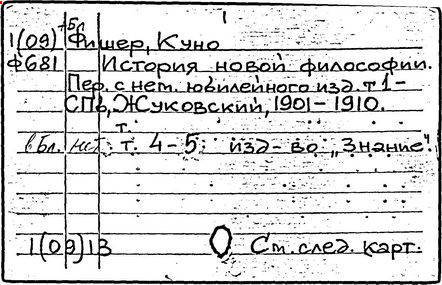 +Бл
1(09) Фишер, Куно
Ф681 История новой философии.
Пер. с нем. юбилейного изд. т 1-
СПб, Жуковский, 1901-1910.
т.
в Бл. нет. т. 4-5: изд-во „Знание".
1(09)13 См. след. карт.